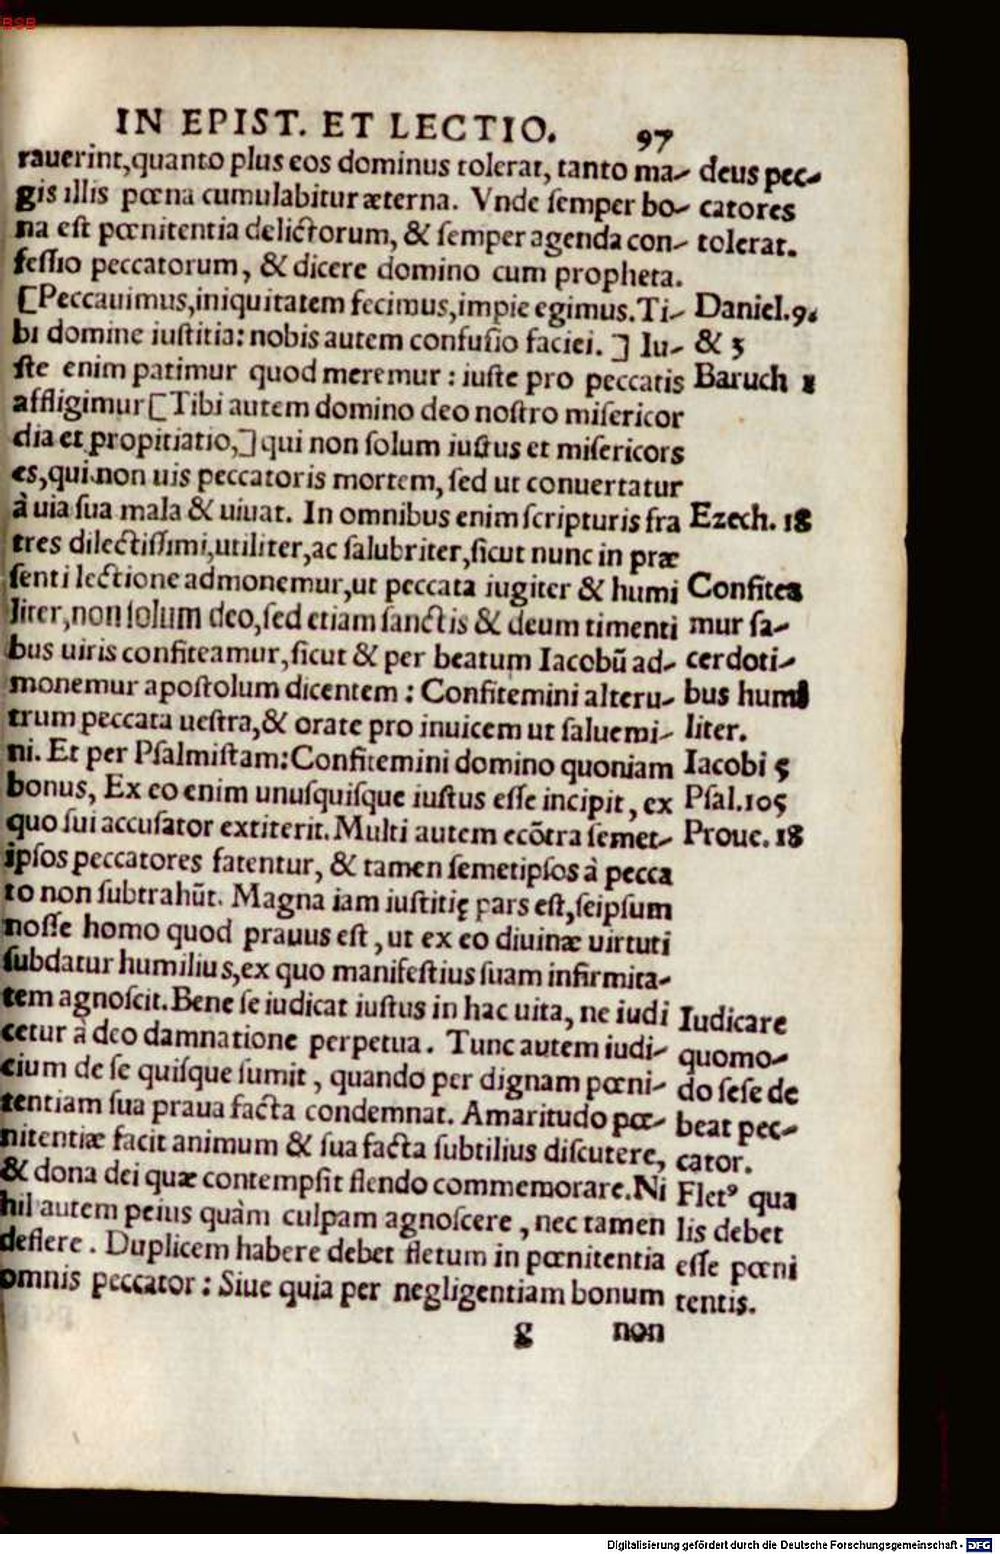 BSB
IN EPIST. ET LECTIO. 97
rauerint,quanto plus eos dominus tolerat, tanto ma-
gis illis pœna cumulabitur æterna. Vnde semper bo-
na est pœnitentia delictorum, & semper agenda con-
fessio peccatorum, & dicere domino cum propheta.
[Peccauimus,iniquitatem fecimus,impie egimus.Ti-
bi domine iustitia: nobis autem confusio faciei. ] Iu-
ste enim patimur quod meremur : iuste pro peccatis
affligimur[Tibi autem domino deo nostro misericor
dia et propitiatio,]qui non solum iustus et misericors
es,qui non uis peccatoris mortem, sed ut conuertatur
à uia sua mala & uiuat. In omnibus enim scripturis fra
tres dilectissimi,utiliter,ac salubriter,sicut nunc in præ
senti lectione admonemur,ut peccata iugiter & humi
liter,non solum deo,sed etiam sanctis & deum timenti
bus uiris confiteamur,sicut & per beatum Iacobũ ad-
monemur apostolum dicentem : Confitemini alteru-
trum peccata uestra,& orate pro inuicem ut saluemi-
ni. Et per Psalmistam:Confitemini domino quoniam
bonus, Ex eo enim unusquisque iustus esse incipit, ex
quo sui accusator extiterit. Multi autem ecõtra semet-
ipsos peccatores fatentur, & tamen semetipsos à pecca
to non subtrahũt. Magna iam iustitię pars est,seipsum
nosse homo quod prauus est, ut ex eo diuinæ uirtuti
subdatur humilius,ex quo manifestius suam infirmita-
tem agnoscit. Bene se iudicat iustus in hac uita, ne iudi
cetur à deo damnatione perpetua. Tunc autem iudi-
cium de se quisque sumit, quando per dignam pœni-
tentiam sua praua facta condemnat. Amaritudo pœ-
nitentiæ facit animum & sua facta subtilius discutere,
& dona dei quæ contempsit flendo commemorare. Ni
hil autem peius quàm culpam agnoscere, nec tamen
deflere. Duplicem habere debet fletum in pœnitentia
omnis peccator : Siue quia per negligentiam bonum
g non
deus pec-
catores
tolerat.
Daniel.9.
& 3
Baruch 1
Ezech. 18
Confitea
mur sa-
cerdoti-
bus humi
liter.
Iacobi 5
Psal.105
Prouc. 18
Iudicare
quomo-
do sese de
beat pec-
cator.
Flet⁹ qua
lis debet
esse pœni
tentis.
Digitalisierung gefördert durch die Deutsche Forschungsgemeinschaft - DFG